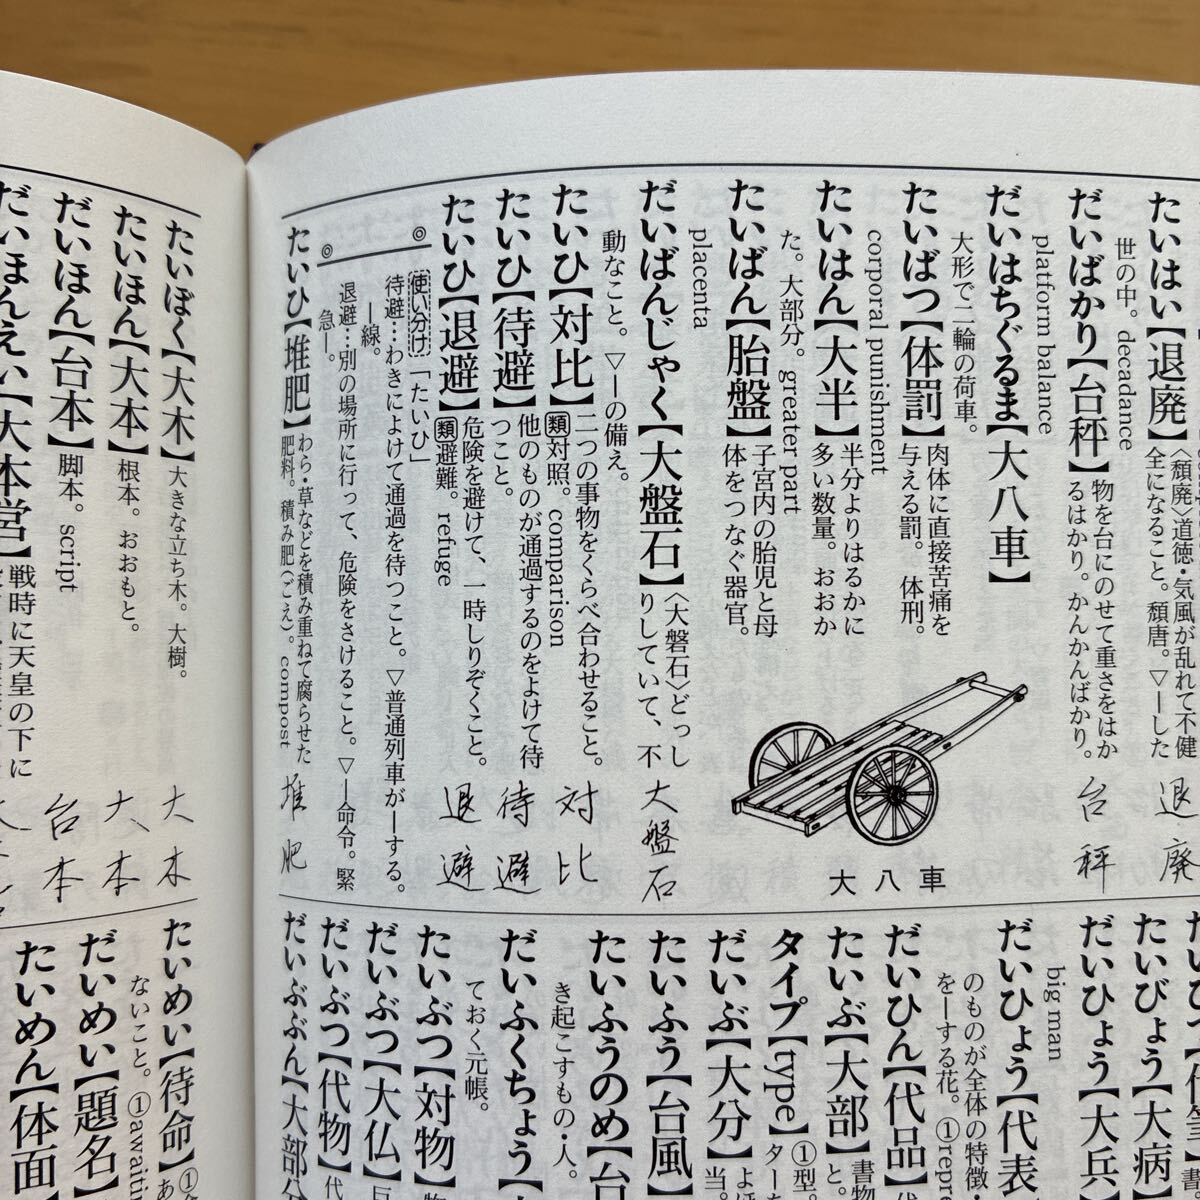 たいはい【退廃】〈頽廃〉道徳・気風が乱れて不健
全になること。頽唐。▽ーした
世の中。decadance
退廃
だいばかり【台秤】物を台にのせて重さをはか
るはかり。かんかんばかり。
platform balance
台秤
だいはちぐるま【大八車】
大形で二輪の荷車。
大八車
たいばつ【体罰】肉体に直接苦痛を
与える罰。体刑。
corporal punishment
たいはん【大半】半分よりはるかに
多い数量。おおか
た。大部分。greater part
たいばん【胎盤】子宮内の胎児と母
体をつなぐ器官。
placenta
だいばんじゃく【大盤石】〈大磐石〉どっし
りしていて、不
動なこと。▽ーの備え。
大盤石
たいひ【対比】二つの事物をくらべ合わせること。
類対照。comparison
対比
たいひ【待避】他のものが通過するのをよけて待
つこと。
待避
たいひ【退避】危険を避けて、一時しりぞくこと。
類避難。refuge
退避
使い分け「たいひ」
待避…わきによけて通過を待つこと。▽普通列車がーする。
ー線。
退避…別の場所に行って、危険をさけること。▽ー命令。緊
急ー。
たいひ【堆肥】わら・草などを積み重ねて腐らせた
肥料。積み肥(ごえ)。compost
堆肥
たいびょう【大病
だいひょう【大兵
big man
だいひょう【代表
のものが全体の特徴・
をーする花。①repre
だいひん【代品】代
たいぶ【大部】書物
と。
タイプ【type】①型。
ターを
だいぶ【大分】よほ
当。
たいふう【台風】
たいふうのめ【台
き起こすもの・人。
だいふくちょう【
ておく元帳。
たいぶつ【対物】
だいぶつ【大仏】巨
だいぶつ【代物】代
だいぶぶん【大部分
たいぼく【大木】大きな立ち木。大樹。
大木
たいほん【大本】根本。おおもと。
大本
だいほん【台本】脚本。script
台本
だいほんえい【大本営】戦時に天皇の下に
たいめい【待命】①
ないこと。①awaitin
だいめい【題名】
たいめん【体面】